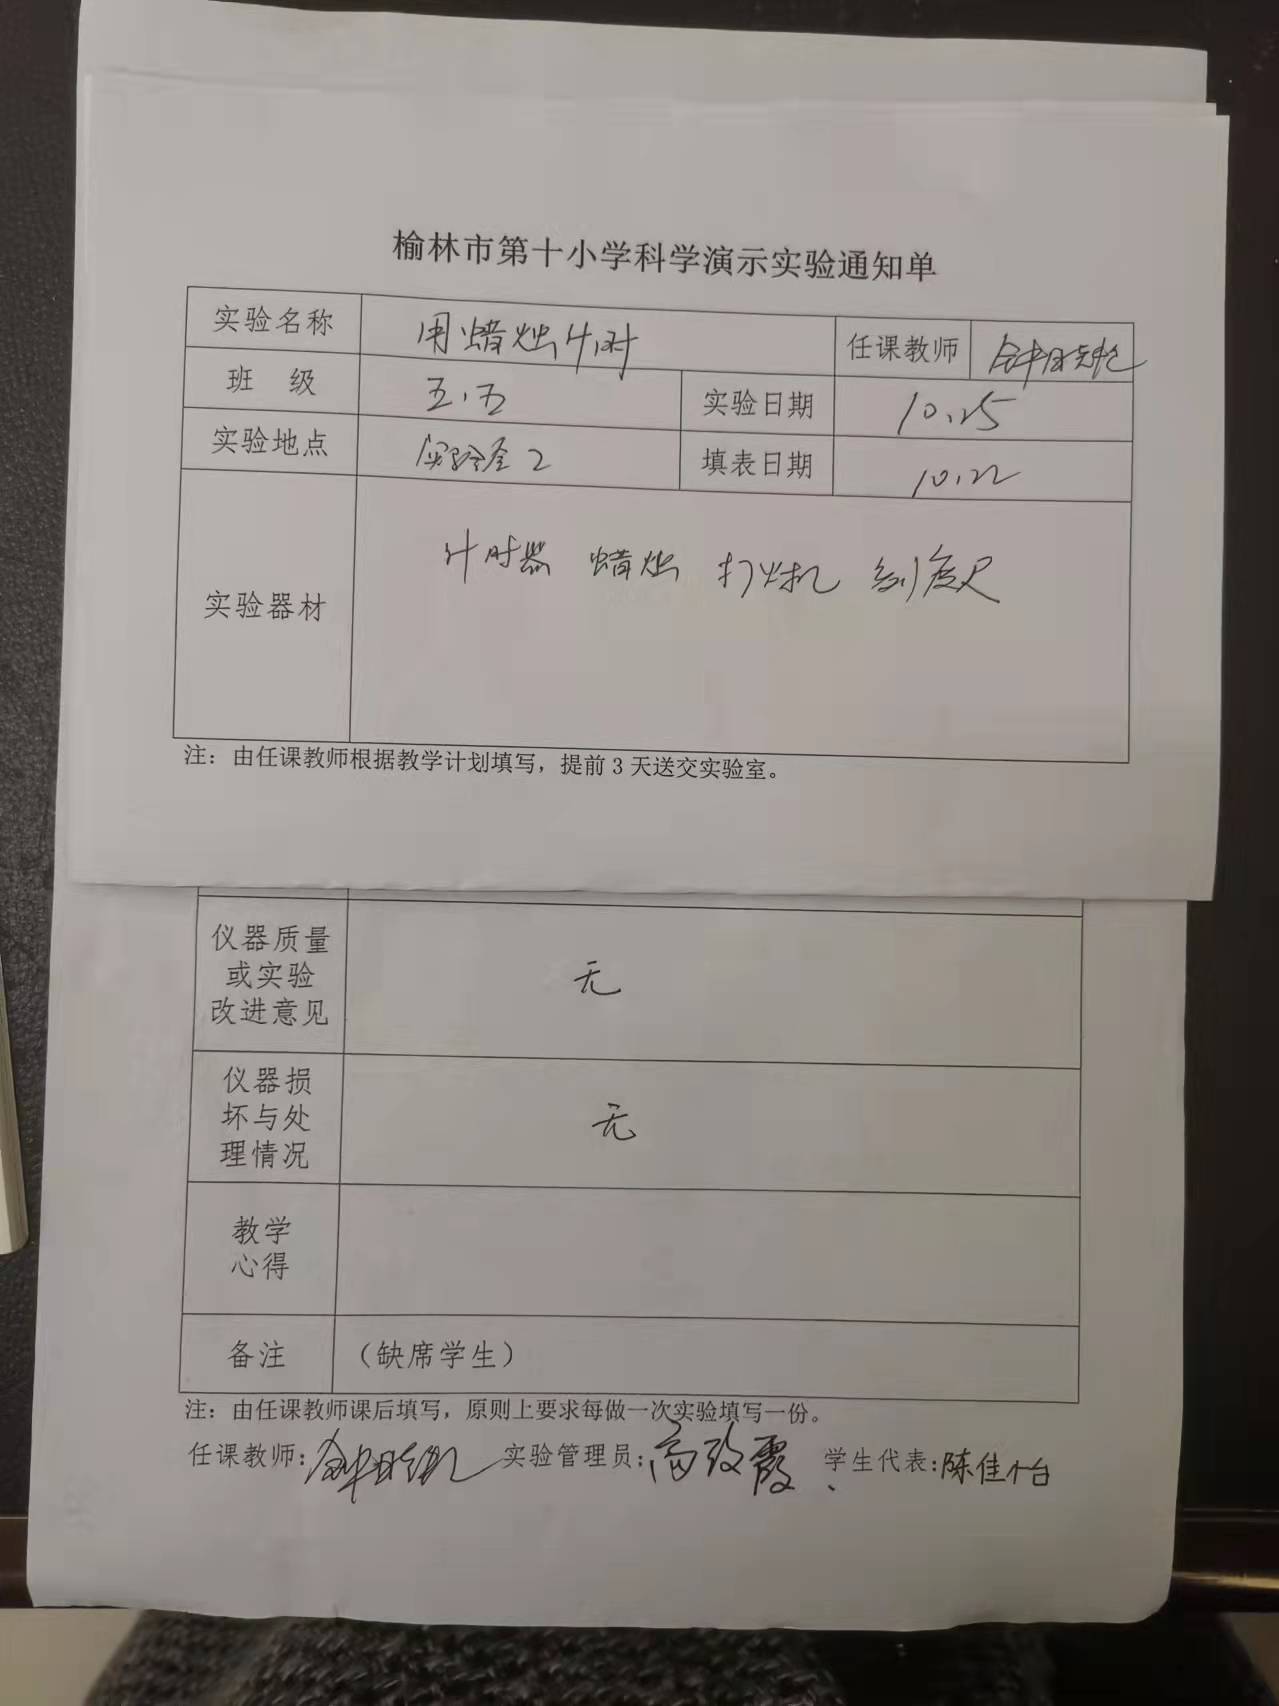 榆林市第十小学科学演示实验通知单
实验名称 用蜡烛计时 任课教师
班 级 五.五 实验日期 10.25
实验地点 实验室2 填表日期 10.22
实验器材 计时器 蜡烛 打火机 刻度尺
注：由任课教师根据教学计划填写，提前3天送交实验室。
仪器质量
或实验
改进意见 无
仪器损
坏与处
理情况 无
教学
心得
备注 （缺席学生）
注：由任课教师课后填写，原则上要求每做一次实验填写一份。
任课教师： 实验管理员：高改霞 学生代表：陈佳怡